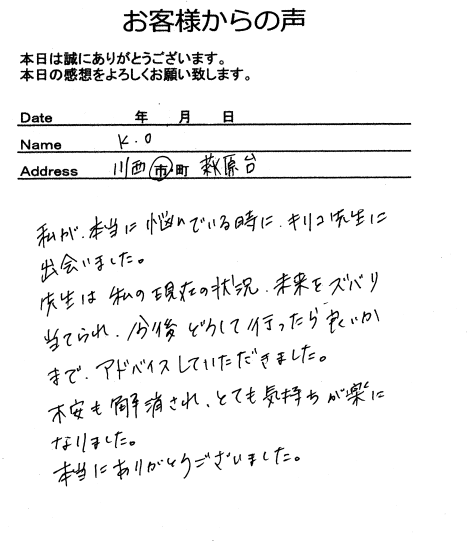 お客様からの声
本日は誠にありがとうございます。
本日の感想をよろしくお願い致します。
Date 年 月 日
Name K.O
Address 川西市・町 萩原台
私が、本当に悩んでいる時に、キリコ先生に
出会いました。
先生は私の現在の状況、未来をズバリ
当てられ、今後どうして行ったら良いか
まで、アドバイスしていただきました。
不安も解消され、とても気持ちが楽に
なりました。
本当にありがとうございました。